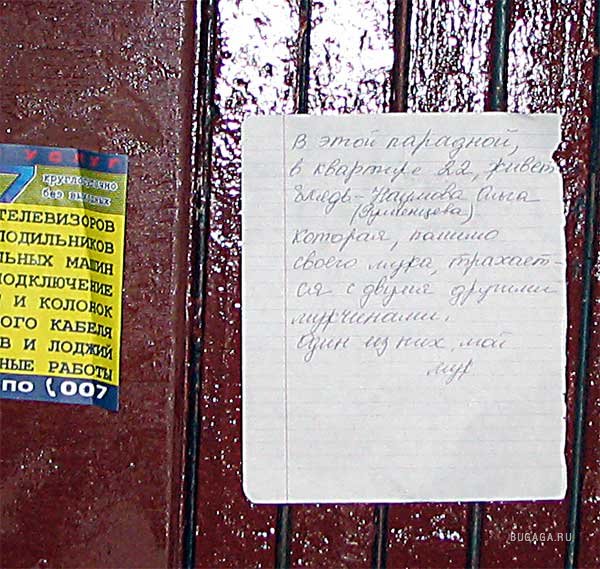 УСЛУГ
7 круглосуточно
без выходных
ТЕЛЕВИЗОРОВ
ЛОДИЛЬНИКОВ
ЛЬНЫХ МАШИН
ПОДКЛЮЧЕНИЕ
И КОЛОНОК
ОГО КАБЕЛЯ
В И ЛОДЖИЙ
НЫЕ РАБОТЫ
ПО 007
В этой парадной,
в квартире 22, живёт
блядь - Наумова Ольга
которая, помимо
своего мужа, трахает-
ся с двумя другими
мужчинами.
Один из них, мой
муж
BUGAGA.RU